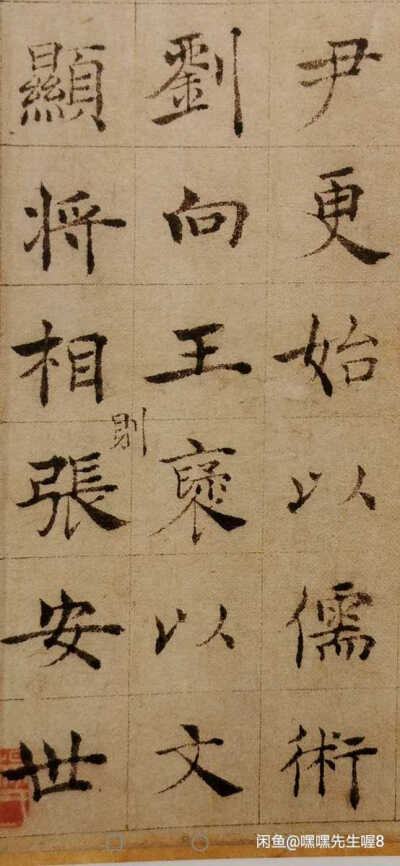 尹更始以儒術
劉向王襃以文
顯將相張安世
則
闲鱼@嘿嘿先生喔8